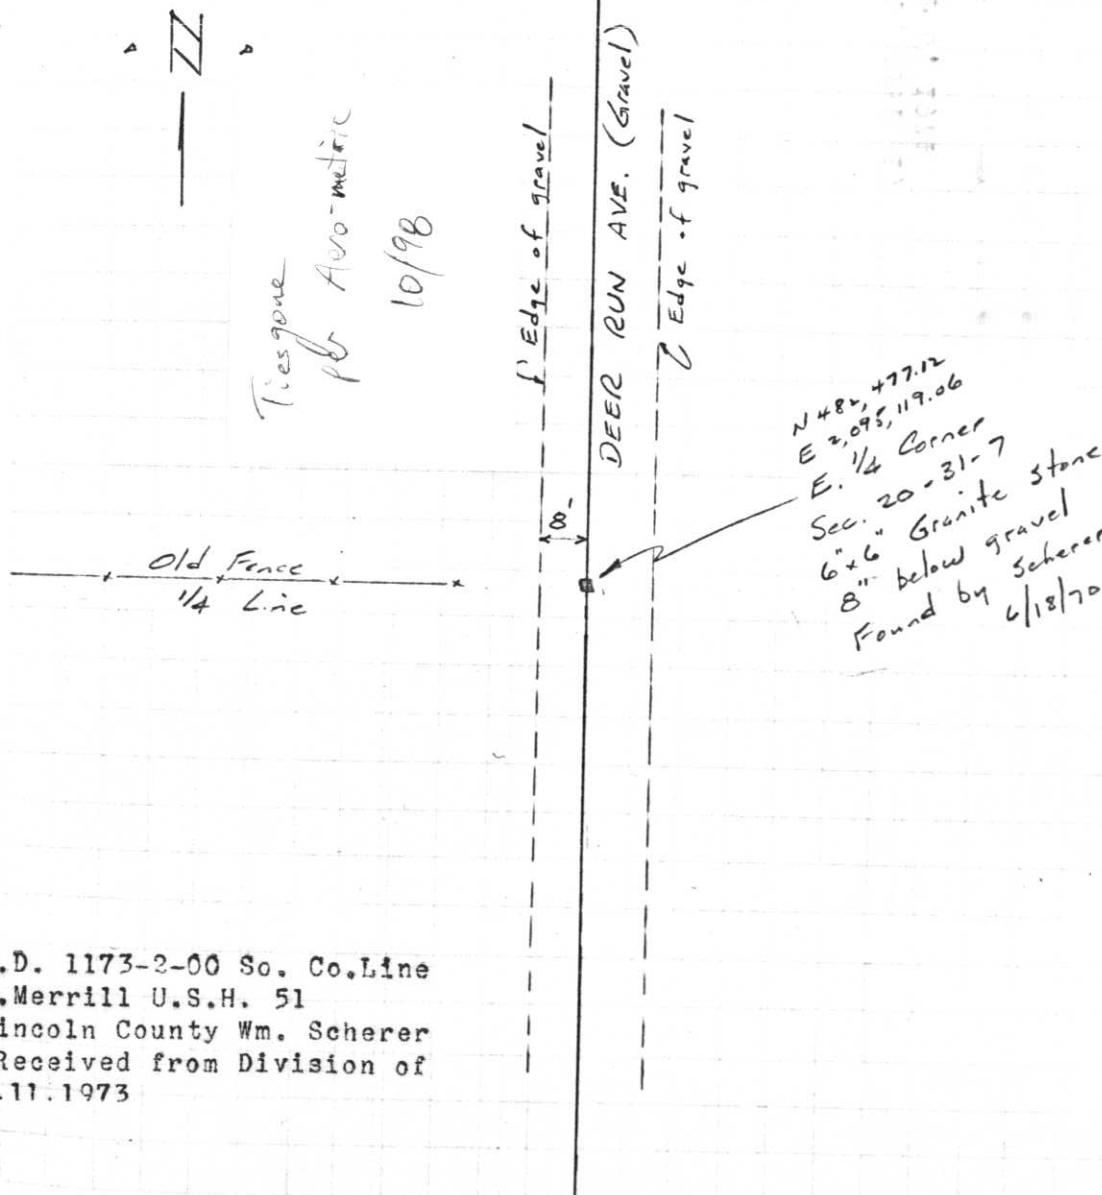 N
Ties gone
per Aero-metric
10/98
Edge of gravel
DEER RUN AVE. (Gravel)
Edge of gravel
8'
Old Fence
1/4 Line
N 482,477.12
E 2,095,119.06
E. 1/4 Corner
Sec. 20-31-7
6"x6" Granite stone
8" below gravel
Found by Scherer
6/18/70
.D. 1173-2-00 So. Co.Line
.Merrill U.S.H. 51
incoln County Wm. Scherer
Received from Division of
.11.1973